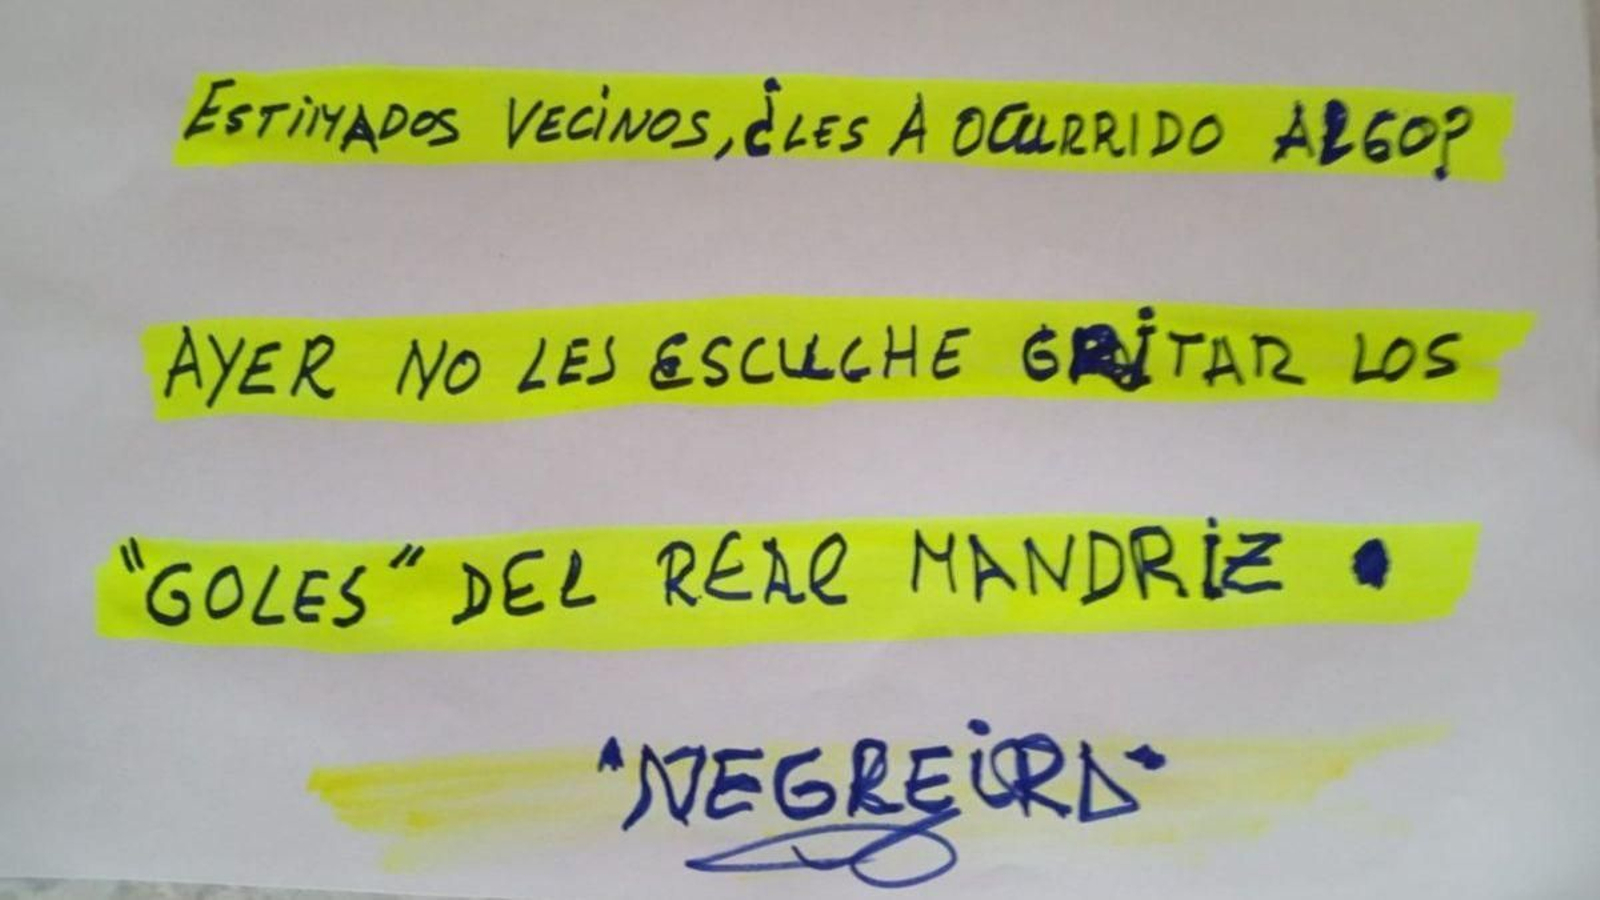 ESTIMADOS VECINOS, ¿LES A OCURRIDO ALGO?
AYER NO LES ESCUCHE GRITAR LOS
"GOLES" DEL REAL MANDRIZ.
"NEGREIRA"